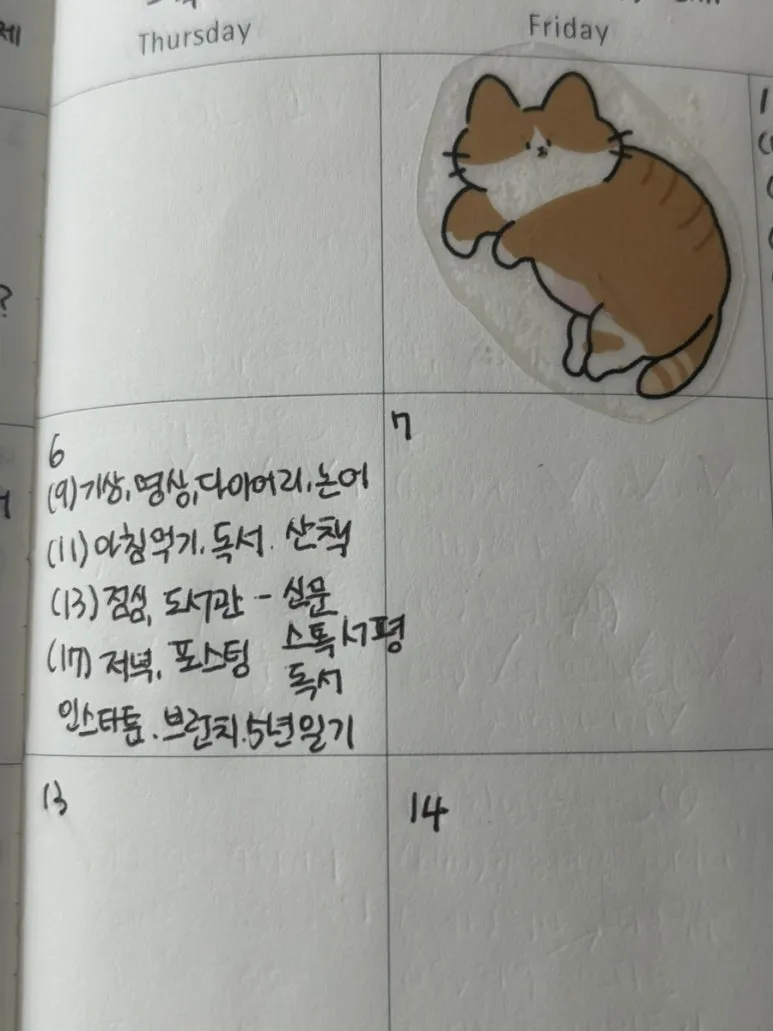 Thursday
Friday
6
(9)기상,명상,다이어리,논어
(11)아침먹기.독서. 산책
(13)점심, 도서관 - 신문
스톡서평
(17)저녁, 포스팅
독서
인스타툰.브런치.5년일기
7
13
14